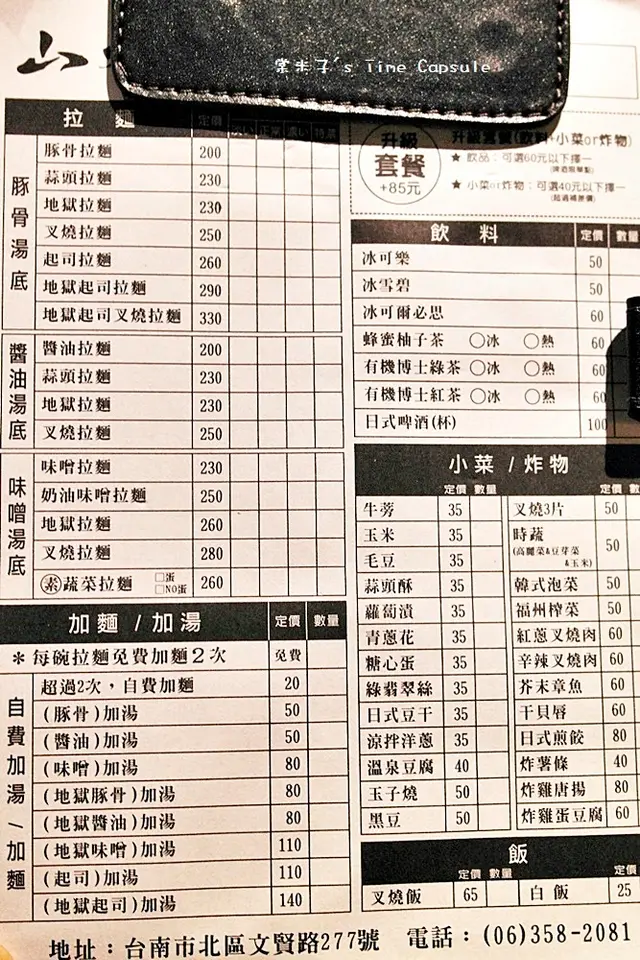 山
棠米子's Time Capsule
拉麵 定價 正常 濃い 特濃
豚骨湯底
豚骨拉麵 200
蒜頭拉麵 230
地獄拉麵 230
叉燒拉麵 250
起司拉麵 260
地獄起司拉麵 290
地獄起司叉燒拉麵 330
醬油湯底
醬油拉麵 200
蒜頭拉麵 230
地獄拉麵 230
叉燒拉麵 250
味噌湯底
味噌拉麵 230
奶油味噌拉麵 250
地獄拉麵 260
叉燒拉麵 280
素蔬菜拉麵 □蛋 □NO蛋 260
加麵 / 加湯 定價 數量
*每碗拉麵免費加麵2次 免費
自費加湯/加麵
超過2次,自費加麵 20
(豚骨)加湯 50
(醬油)加湯 50
(味噌)加湯 80
(地獄豚骨)加湯 80
(地獄醬油)加湯 80
(地獄味噌)加湯 110
(起司)加湯 110
(地獄起司)加湯 140
升級套餐(飲料+小菜or炸物)
升級
套餐
+85元
★ 飲品:可選60元以下擇一
(啤酒限單點)
★ 小菜or炸物:可選40元以下擇一
(超過補差價)
飲料 定價 數量
冰可樂 50
冰雪碧 50
冰可爾必思 60
蜂蜜柚子茶 ○冰 ○熱 60
有機博士綠茶 ○冰 ○熱 60
有機博士紅茶 ○冰 ○熱 60
日式啤酒(杯) 100
小菜 / 炸物
定價 數量 定價 數量
牛蒡 35 叉燒3片 50
玉米 35 時蔬 50
(高麗菜&豆芽菜
&玉米)
毛豆 35
蒜頭酥 35 韓式泡菜 50
蘿蔔漬 35 福州榨菜 50
青蔥花 35 紅蔥叉燒肉 60
糖心蛋 35 辛辣叉燒肉 60
綠翡翠絲 35 芥末章魚 60
日式豆干 35 干貝唇 60
涼拌洋蔥 35 日式煎餃 80
溫泉豆腐 40 炸薯條 40
玉子燒 50 炸雞唐揚 80
黑豆 50 炸雞蛋豆腐 60
飯
定價 數量 定價
叉燒飯 65 白飯 25
地址:台南市北區文賢路277號 電話:(06)358-2081